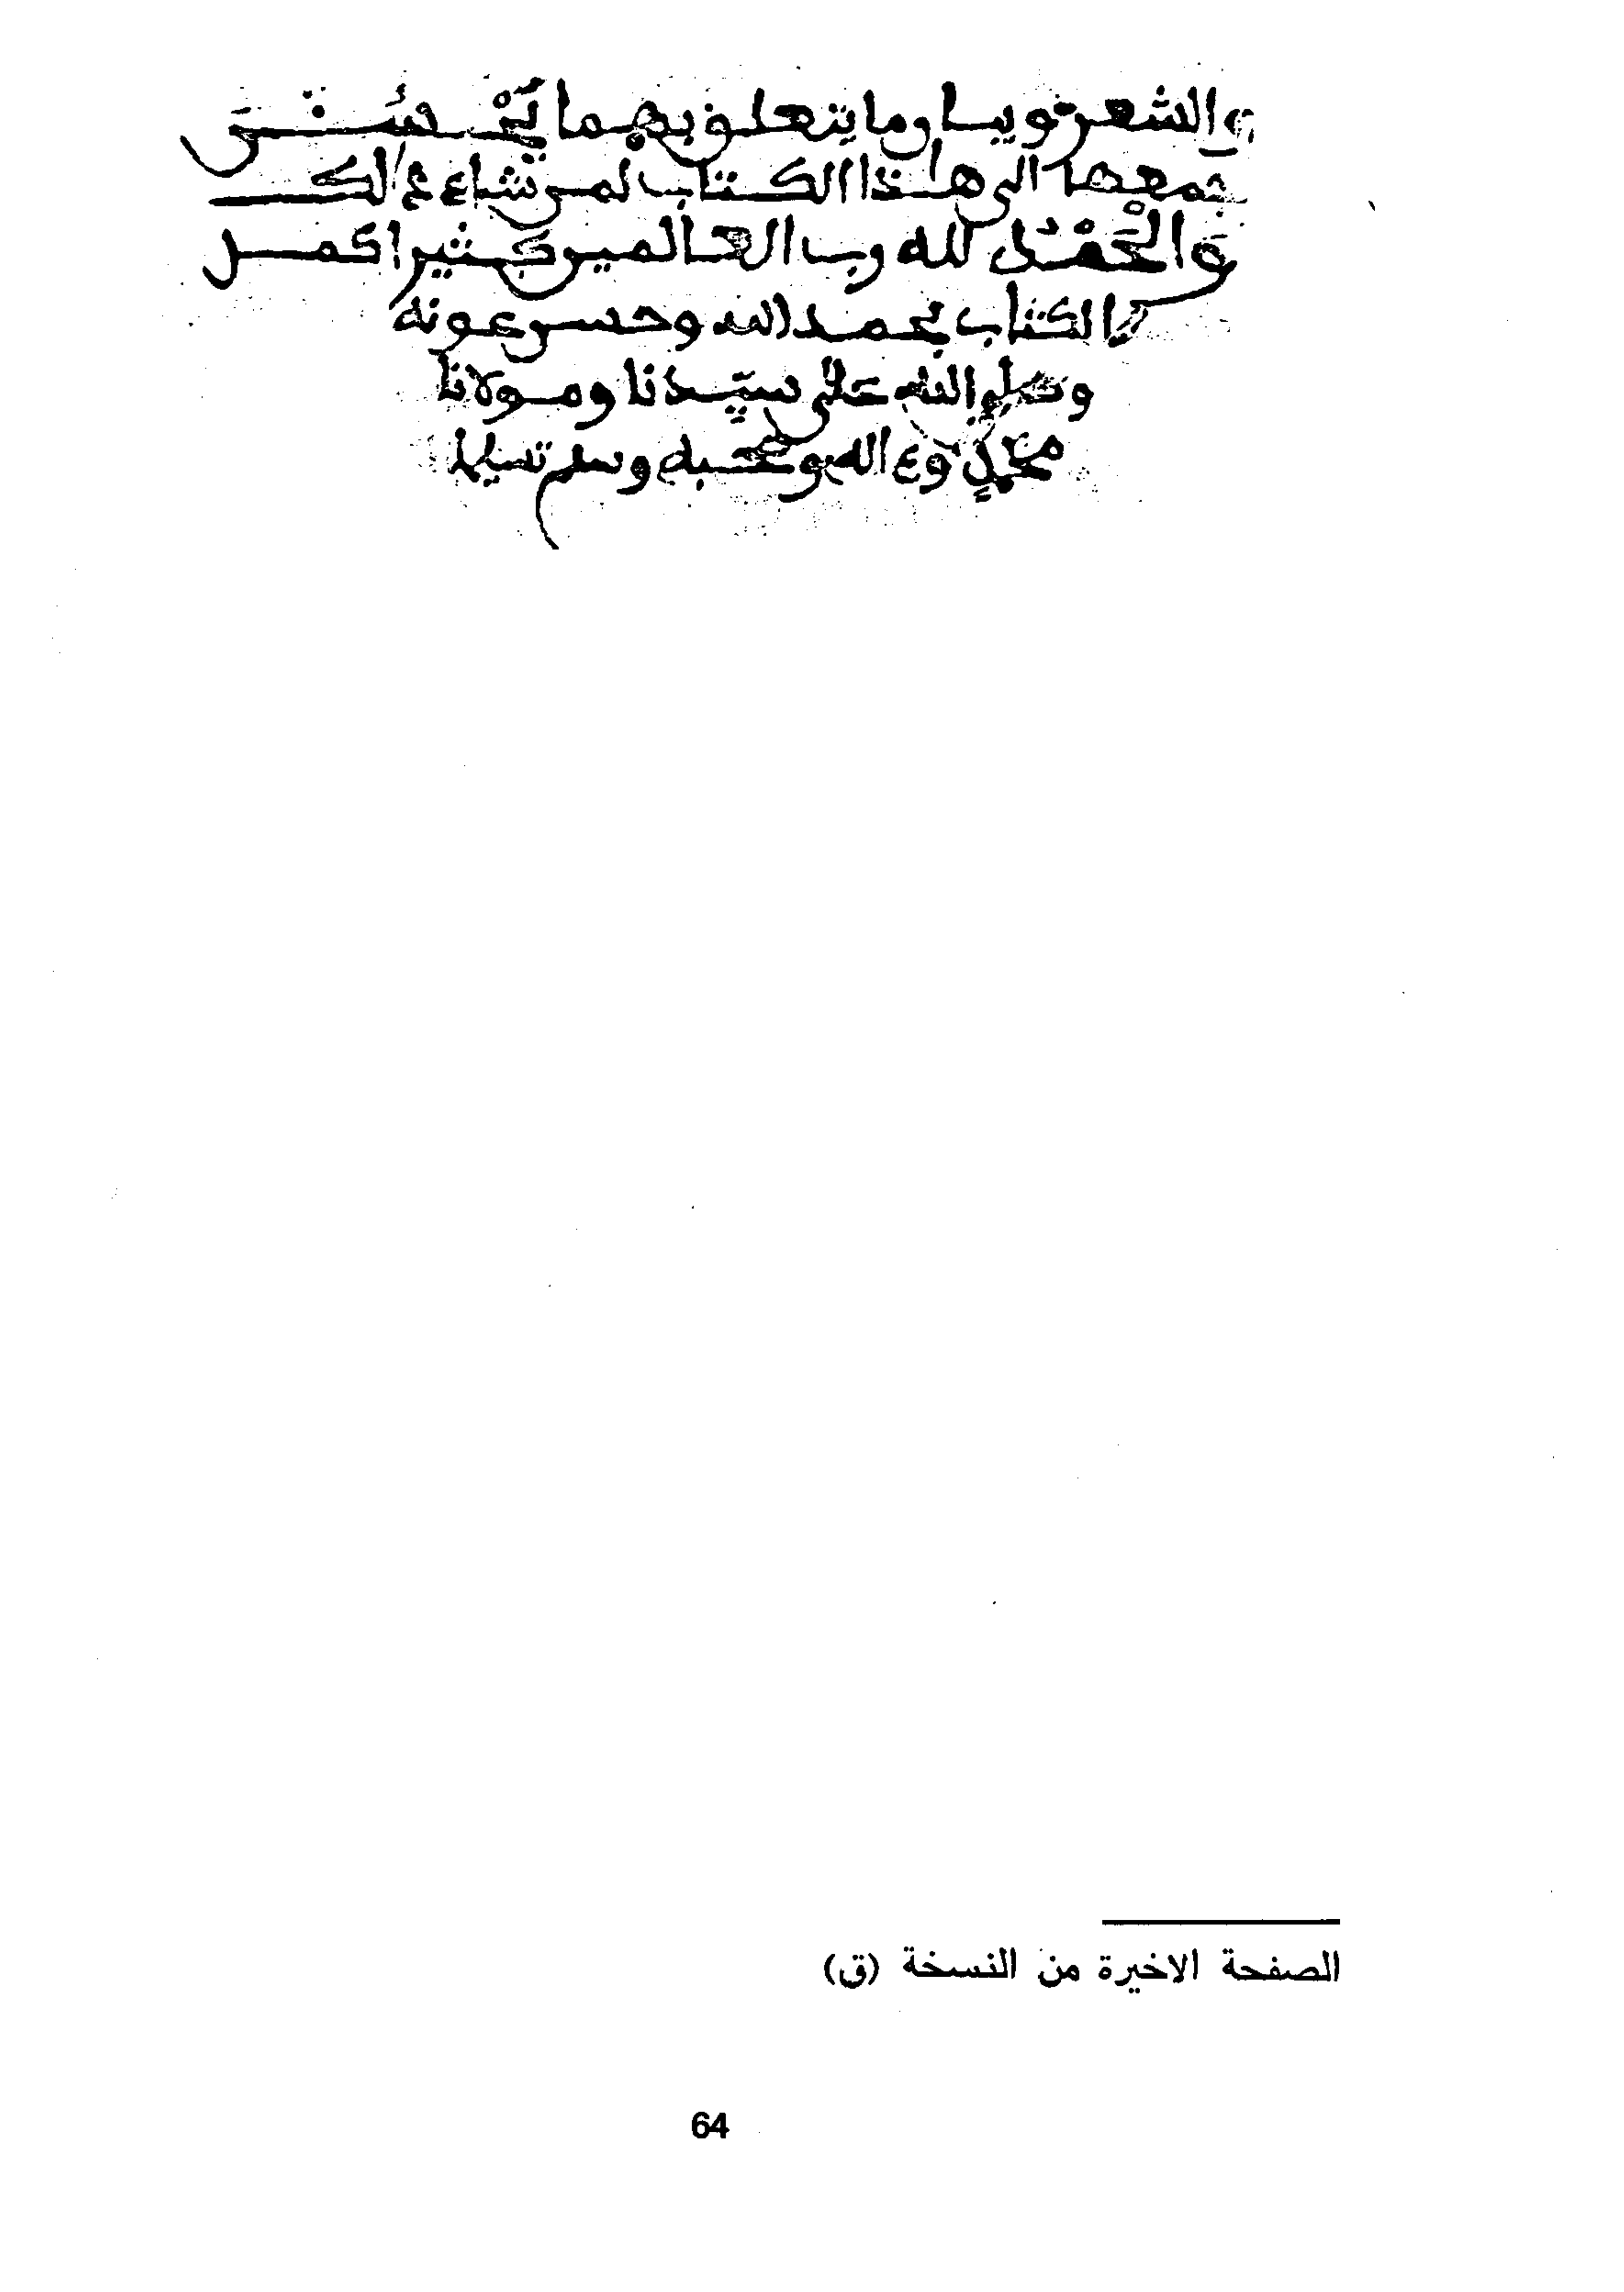 والشعر قريبا وما يتعلق بهما يحسن
جمعها الى هذا الكتاب لمن شاء ذالك
والحمد لله رب العالمين كثيرا كمل
الكتاب بحمد الله وحسن عونه
وصلى الله على سيدنا ومولانا
محمد وءاله وصحبه وسلم تسليما
الصفحة الاخيرة من النسخة (ق)
64